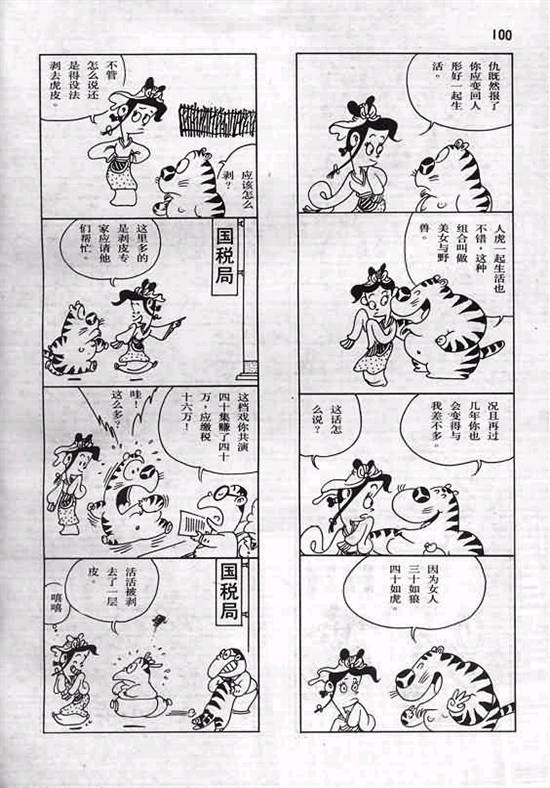 100
仇既然报了
你应变回人
形好一起生
活。
人虎一起生活也
不错，这种
组合叫做
美女与野
兽。
况且再过
几年你也
会变得与
我差不多。
这话怎
么说？
因为女人
三十如狼
四十如虎。
不管
怎么说还
是得设法
剥去虎皮。
应该怎么
剥？
国税局
这里多的
是剥皮专
家应请他
们帮忙。
这档戏你共演
四十集赚了四十
万，应缴税
十六万！
哇！
这么多？
国税局
活活被剥
去了一层
皮。
嘻嘻